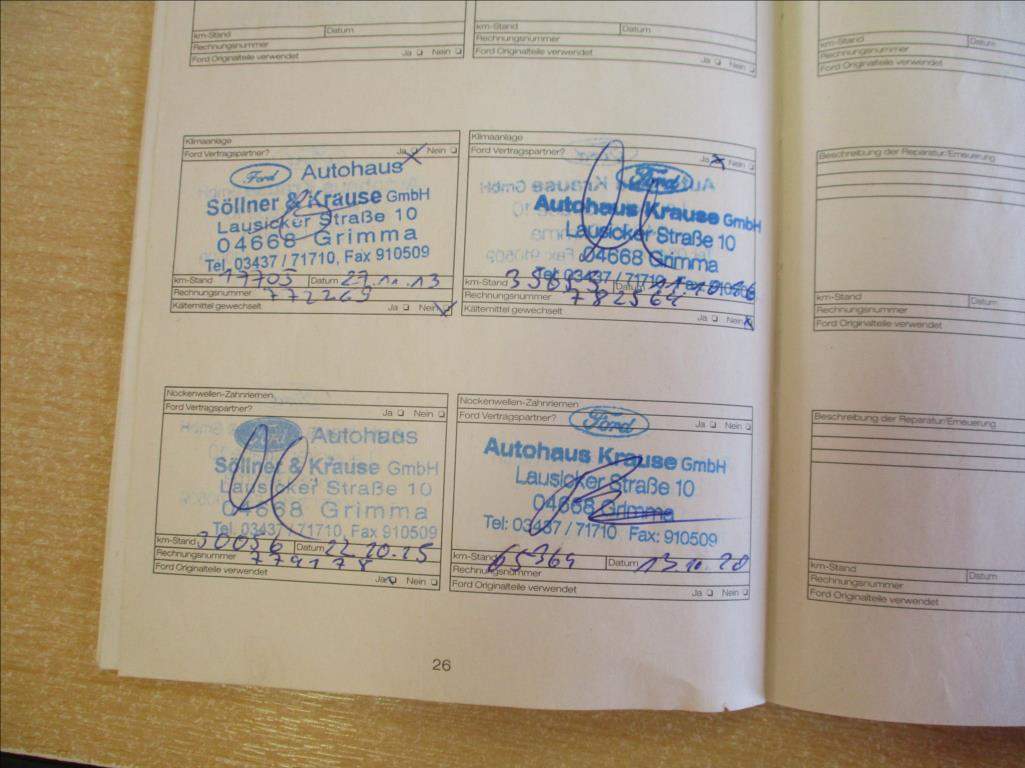 km-Stand Datum
Rechnungsnummer
Ford Originalteile verwendet Ja Nein
km-Stand Datum
Rechnungsnummer
Ford Originalteile verwendet Ja Nein
Klimaanlage
Ford Vertragspartner? Ja Nein
Ford Autohaus
Söllner & Krause GmbH
Lausicker Straße 10
04668 Grimma
Tel. 03437 / 71710, Fax 910509
km-Stand 17705 Datum 27.11.13
Rechnungsnummer 772269
Kältemittel gewechselt Ja Nein
Klimaanlage
Ford Vertragspartner? Ja Nein
Ford
Autohaus Krause GmbH
Lausicker Straße 10
04668 Grimma
Tel. 03437 / 71710 Fax 910509
km-Stand Datum
Rechnungsnummer 782564
Kältemittel gewechselt Ja Nein
Nockenwellen-Zahnriemen
Ford Vertragspartner? Ja Nein
Ford Autohaus
Söllner & Krause GmbH
Lausicker Straße 10
04668 Grimma
Tel. 03437 / 71710, Fax 910509
km-Stand 30036 Datum 22.10.15
Rechnungsnummer 779178
Ford Originalteile verwendet Ja Nein
Nockenwellen-Zahnriemen
Ford Vertragspartner? Ja Nein
Ford
Autohaus Krause GmbH
Lausicker Straße 10
04668 Grimma
Tel: 03437 / 71710 Fax: 910509
km-Stand 65364 Datum 13.10.20
Rechnungsnummer
Ford Originalteile verwendet Ja Nein
26
km-Stand Datum
Rechnungsnummer
Ford Originalteile verwendet
Beschreibung der Reparatur/Erneuerung
km-Stand Datum
Rechnungsnummer
Ford Originalteile verwendet
Beschreibung der Reparatur/Erneuerung
km-Stand Datum
Rechnungsnummer
Ford Originalteile verwendet